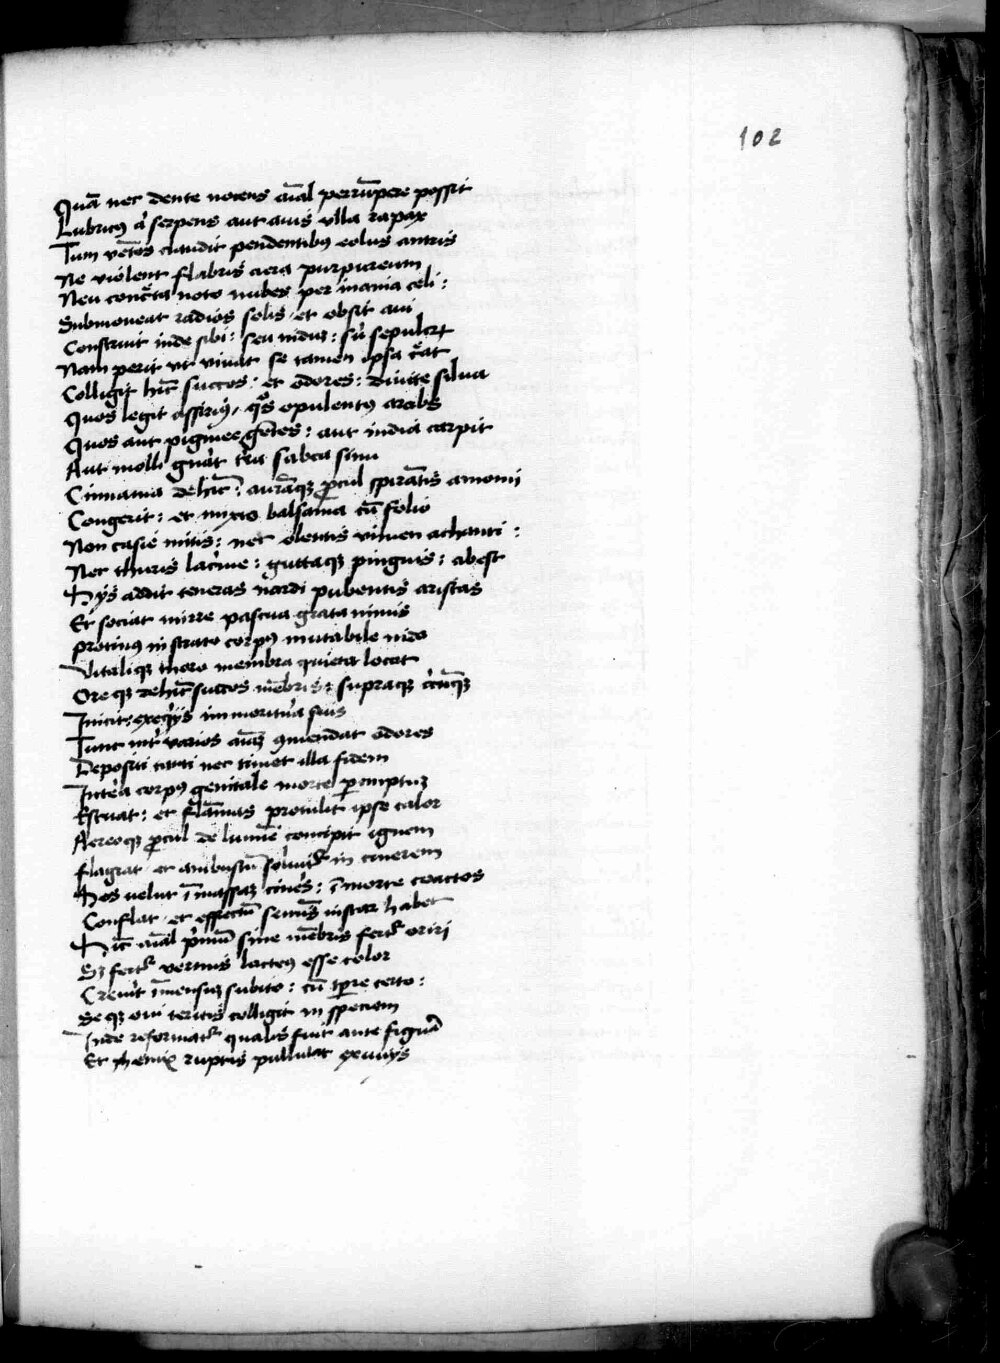 102
Quā nec dente nocens aīal perrūpere possit
Lubricꝰ aͥ serpens aut auis vlla rapax
Tum vētos claudit pendentibꝰ eolus antris
Ne violent flabris aera purpureum
Neu concͣta noto nubes per inania celi :
Submoueat radios solis et obsit aui
Construit inde sibi : seu nidūꝫ : sͥu sepulcrꝫ
Nam perit vt viuat se tamen ipsa cͤat
Colligit hīc succos : et odores : diuite silua
Quos legit assiriꝰ, qͦs opulentꝰ arabs
Quos aut pigmee gētes : aut india carpit
Aut molli gnͣat tͤra sabea sinu
Cinnama dehīc : aurāqꝫ ꝓcul spirātis amomi
Congerit : et mixto balsama cū folio
Non casie mitis : nec olentis vimen achanti :
Nec thuris lacͥme : guttaqꝫ pinguis : abest
Hys addit teneras nardi pubentis aristas
Et sociat mirre pascua grata nimis
Protinꝰ instrato corpꝰ mutabile nido
Vitaliqꝫ thoro membra quieta locat
Ore qꝫ dehīc succos mēbris : supraqꝫ cͥcūqꝫ
Inicit : exeqͥys immoritura suis
Tunc intͤ varios aīaꝫ ꝯmendat odores
Depositi tanti nec timet illa fidem
Intͤea corpꝰ genitale morte ꝑemptuꝫ
Estuat : et flāmas protulit ipse calor
Aereoqꝫ ꝓcul de lumīe concipit ignem
flagrat et ambustū soluitᷣ in cinerem
Hos velut ī massaꝫ cines : ī morte coactos
Conflat et effectū semīs instar habet
Hīc aīal pͥmū sine mēbris fertᷣ oriri
Sꝫ fertᷣ vermis lacteꝰ esse color
Creuit īmensuꝫ subito : cū tꝑe certo :
Se qꝫ oui teritis colligit in speciem
Inde reformatᷣ qualis fuit ante figurā
Et phenix ruptis pullulat exuuiys